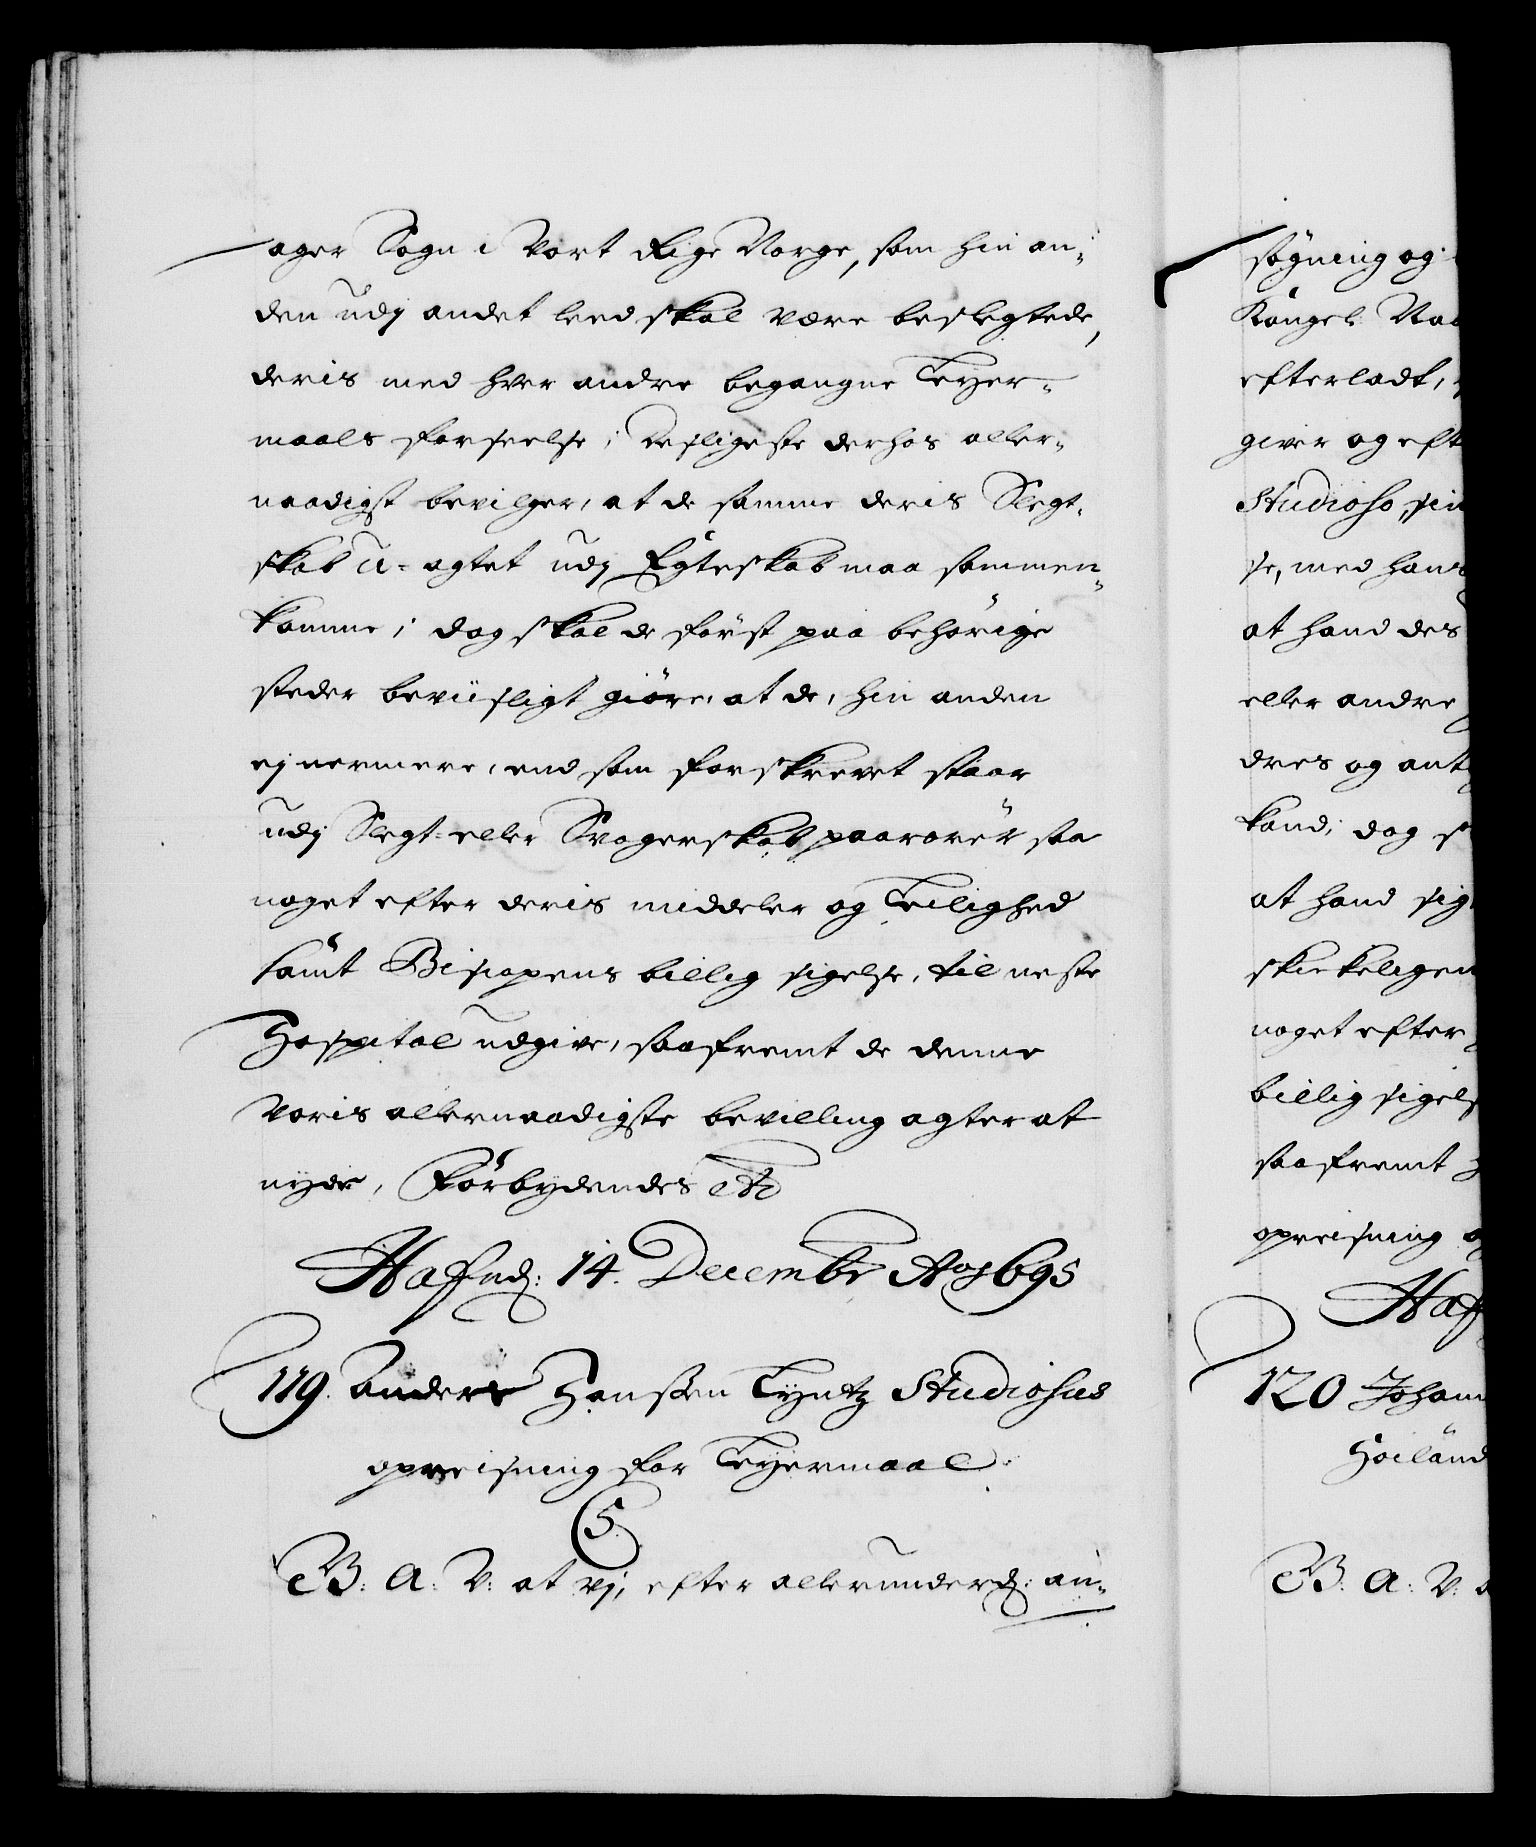 ager Sogn i Vort Rige Norge, som hin an-
den udj andet leed skal være beslegtede,
deris med hver andre begangne Leyer-
maals forseelse; Desligeste derhos aller-
naadigst bevilger, at de samme deris Slegt-
skab u-agtet udj Egteskab maa sammen-
komme; dog skal de först paa behörige
steder beviisligt giöre, at de, hin anden
ej nermere, end som forskrevet staar
udj Slegt- eller Svogerskab paarörer saa
noget efter deris middeler og Leilighed
samt Bispens billig sigelse, til neste
Hospital udgive, saafremt de denne
Voris allernaadigste bevilling agter at
nyde, Forbydendes etc
Hafnd: 14. Decembr Ao 1695
119. Anders Hanssen Lyntz Studiosus
opreisning for Leyermaal.
5.
B: A: V: at vj, efter allerunderd: an-
søgning og
Kongel: Naa
efterladt,
giver og eft
Studioso, sin
se, med hans
at hand des
eller andre
dres og ant
kand; dog s
at hand sig
skickeligen
noget efter
billig sigels
saafremt
opreisning o
Haf
120 Johan
Hoiland
B: A: V: a